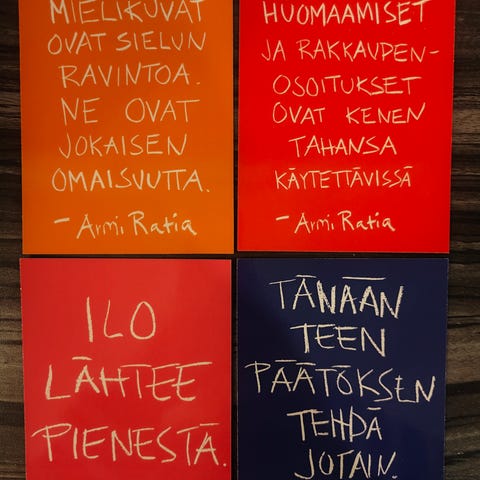 MIELIKUVAT
OVAT SIELUN
RAVINTOA.
NE OVAT
JOKAISEN
OMAISUUTTA.
- Armi Ratia
HUOMAAMISET
JA RAKKAUDEN-
OSOITUKSET
OVAT KENEN
TAHANSA
KÄYTETTÄVISSÄ
- Armi Ratia
ILO
LÄHTEE
PIENESTÄ.
TÄNÄÄN
TEEN
PÄÄTÖKSEN
TEHDÄ
JOTAIN.